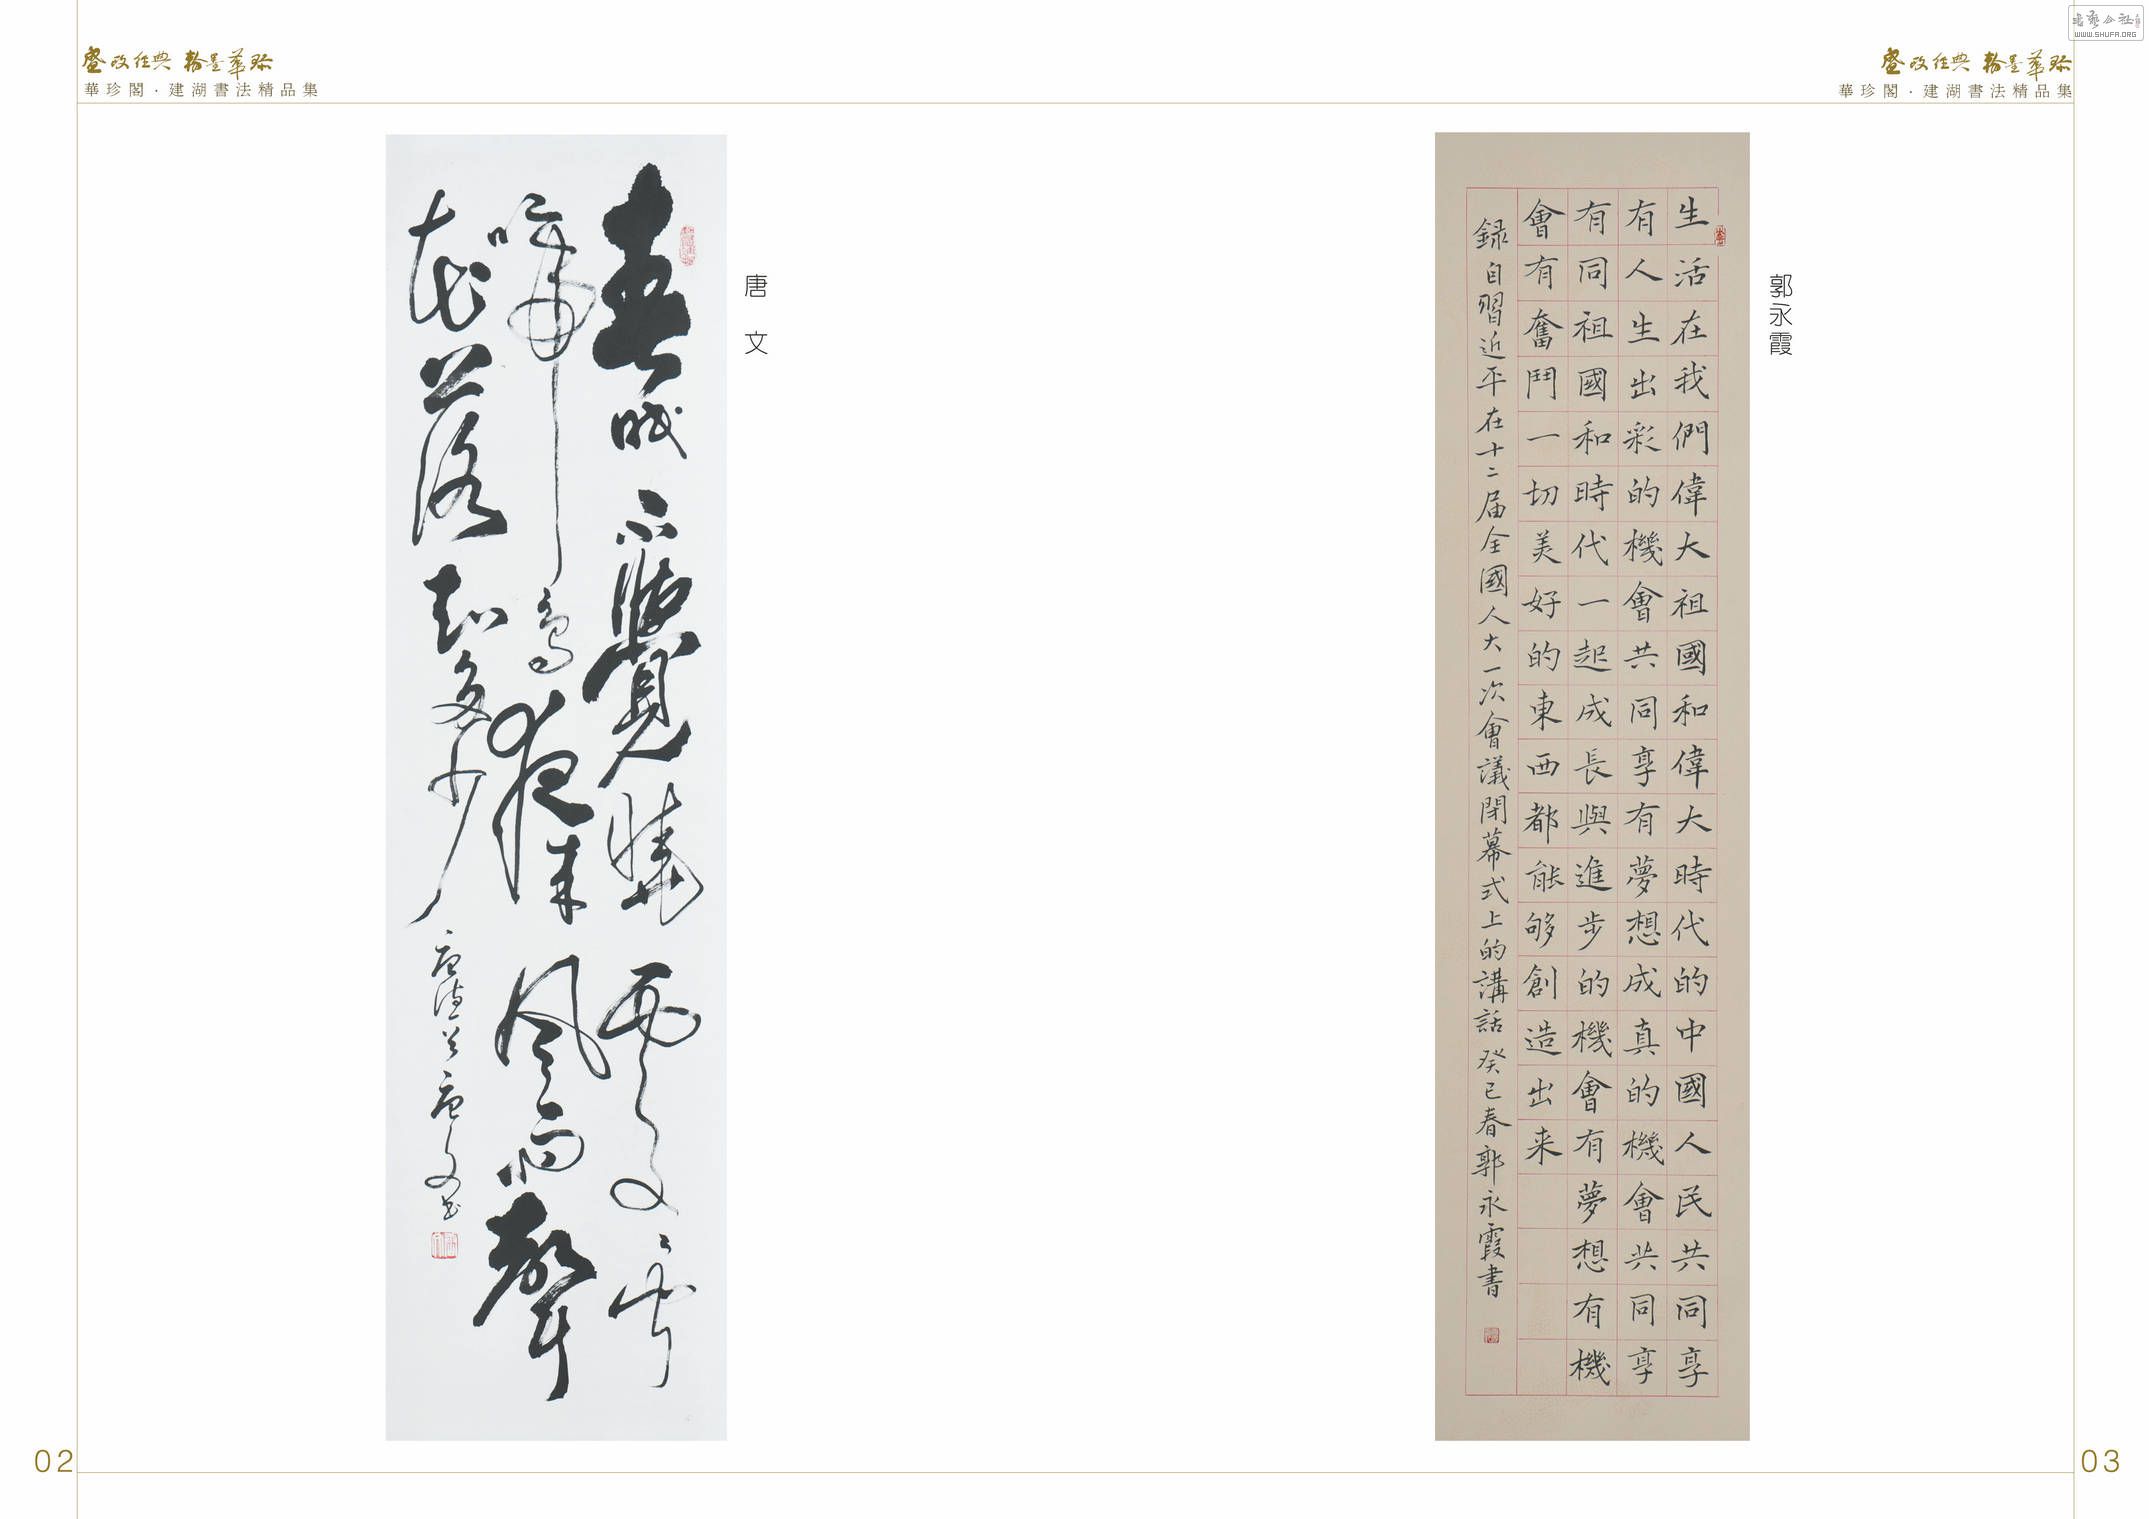 盛政經典 翰墨華珍
華珍閣·建湖書法精品集
唐 文
春眠不覺曉處處聞
啼鳥夜来风雨聲
花落知多少
唐诗一首 唐文书
02
書藝公社
WWW.SHUFA.ORG
盛政經典 翰墨華珍
華珍閣·建湖書法精品集
郭永霞
生活在我們偉大祖國和偉大時代的中國人民共同享
有人生出彩的機會共同享有夢想成真的機會共同享
有同祖國和時代一起成長與進步的機會有夢想有機
會有奮鬥一切美好的東西都能够創造出来
録自習近平在十二届全國人大一次會議閉幕式上的講話 癸巳春郭永霞書
03